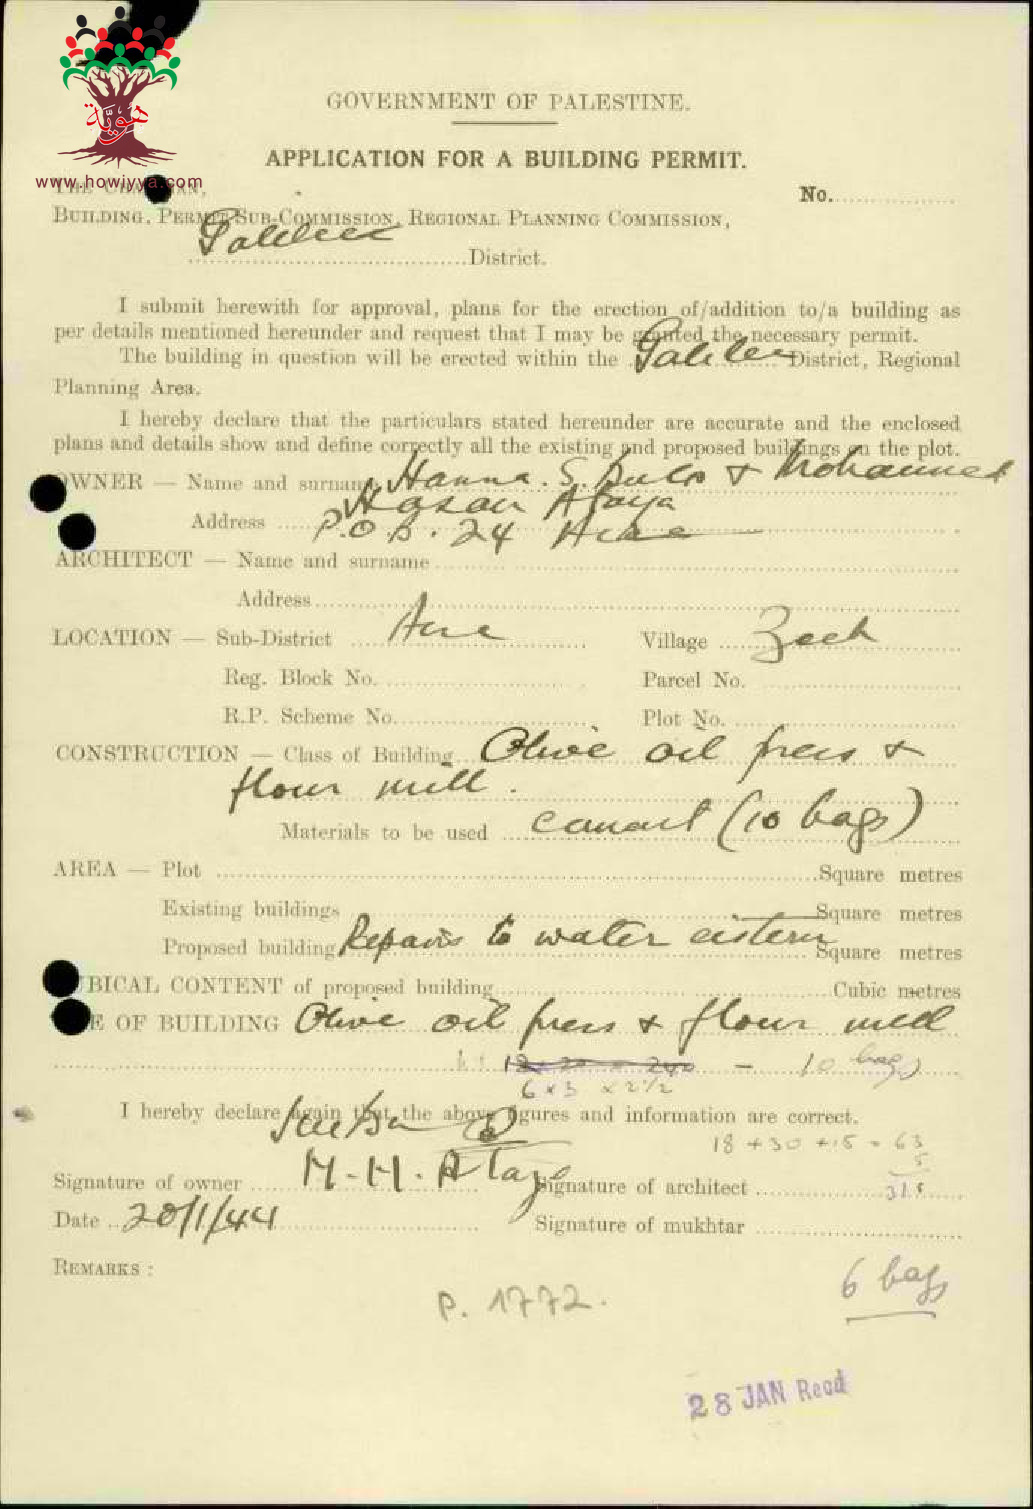 هوية
www.howiyya.com
GOVERNMENT OF PALESTINE.
APPLICATION FOR A BUILDING PERMIT.
THE CHAIRMAN,
No.
BUILDING, PERMIT SUB-COMMISSION, REGIONAL PLANNING COMMISSION,
Galilee District.
I submit herewith for approval, plans for the erection of/addition to/a building as
per details mentioned hereunder and request that I may be granted the necessary permit.
The building in question will be erected within the Galilee District, Regional
Planning Area.
I hereby declare that the particulars stated hereunder are accurate and the enclosed
plans and details show and define correctly all the existing and proposed buildings on the plot.
OWNER — Name and surname Hanna. S. & Mohammed
Hasan
Address P.O.B. 24 Acre
ARCHITECT — Name and surname
Address
LOCATION — Sub-District Acre Village Zeeb
Reg. Block No. Parcel No.
R.P. Scheme No. Plot No.
CONSTRUCTION — Class of Building Olive oil press &
flour mill.
Materials to be used cement (10 bags)
AREA — Plot Square metres
Existing buildings Square metres
Proposed building Repairs to water cistern Square metres
CUBICAL CONTENT of proposed building Cubic metres
USE OF BUILDING Olive oil press & flour mill
12 x 20 = 240 — 10 bags
6 x 3 x 2½
I hereby declare again that the above figures and information are correct.
18 + 30 + 15 = 63
5
315
Signature of owner M.H. Signature of architect
Date 20/1/44 Signature of mukhtar
REMARKS :
6 bags
P. 1772.
28 JAN Recd